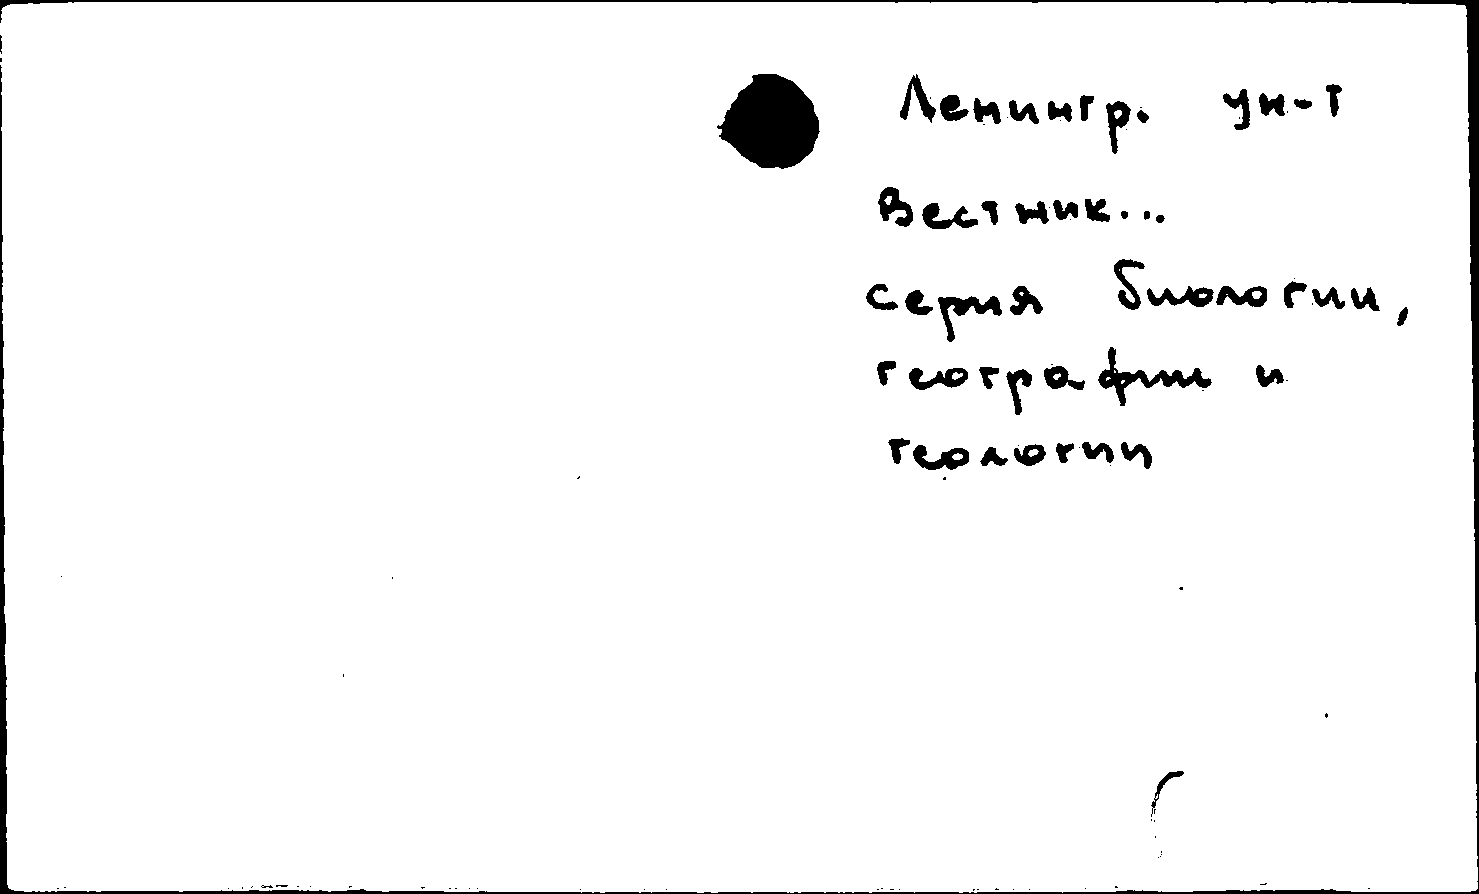 Ленингр. ун-т
Вестник...
серия биологии,
географии и
геологии